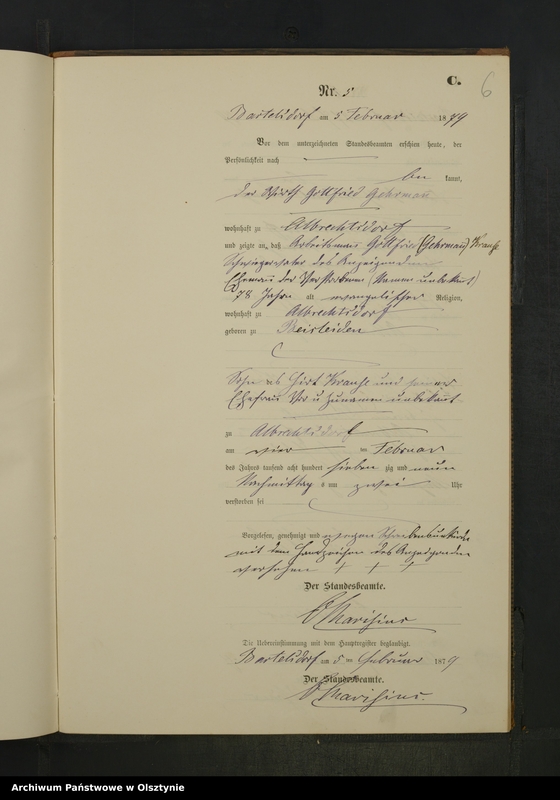 C.
6
Nr. 5
Bartelsdorf am 5 Februar 1879
Vor dem unterzeichneten Standesbeamten erschien heute, der
Persönlichkeit nach
be kannt,
der Wirth Gottfried Gehrmann
wohnhaft zu Albrechtsdorf
und zeigte an, daß Arbeitsmann Gottfried (Gehrman) Krause
Schwiegervater des Anzeigenden
Ehemann der Verstorbenen (Namen unbekant)
78 Jahre alt evangelischer Religion,
wohnhaft zu Albrechtsdorf
geboren zu Beisleiden
Sohn des Hirt Krause und seiner
Ehefrau Vor u Zunamen unbekant
zu Albrechtsdorf
am vier ten Februar
des Jahres tausend acht hundert sieben zig und neun
Nachmittag s um zwei Uhr
verstorben sei
Vorgelesen, genehmigt und wegen Schreibensunkunde
mit dem Handzeichen des Anzeigenden
versehen + + +
Der Standesbeamte.
Die Uebereinstimmung mit dem Hauptregister beglaubigt.
Bartelsdorf am 5 ten Februar 1879
Der Standesbeamte.
Archiwum Państwowe w Olsztynie